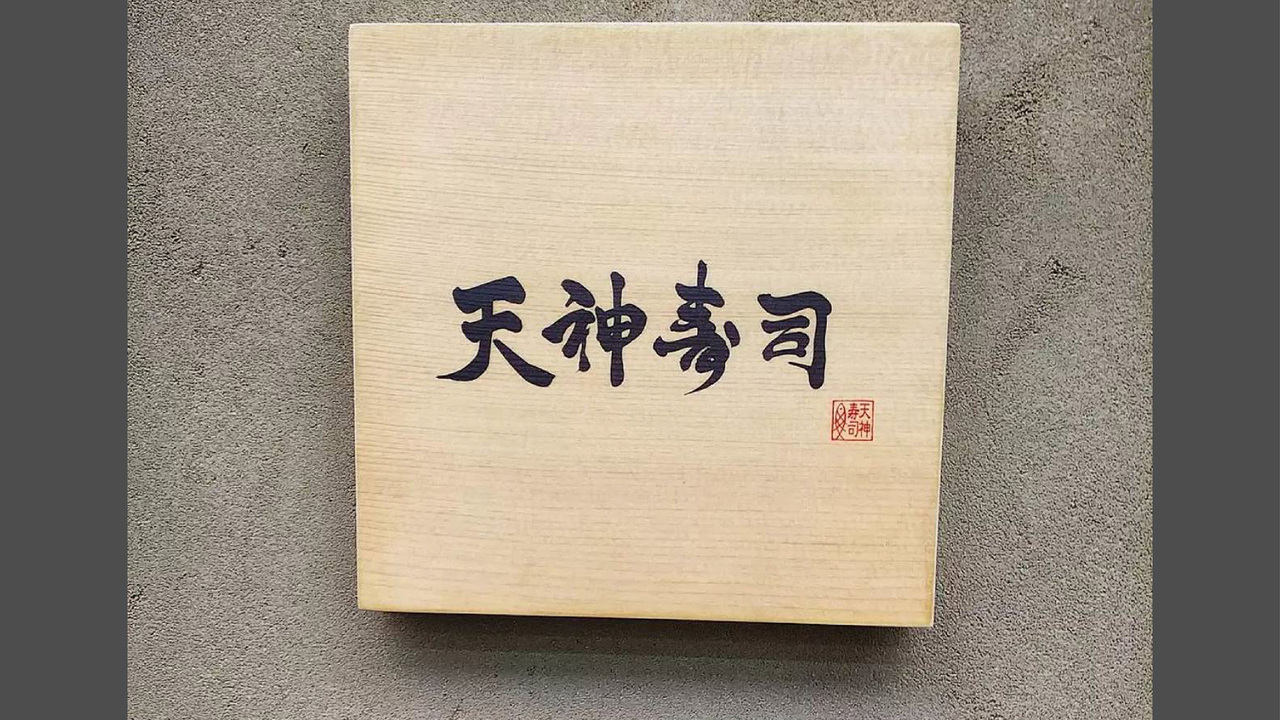 天神寿司
天神
寿司